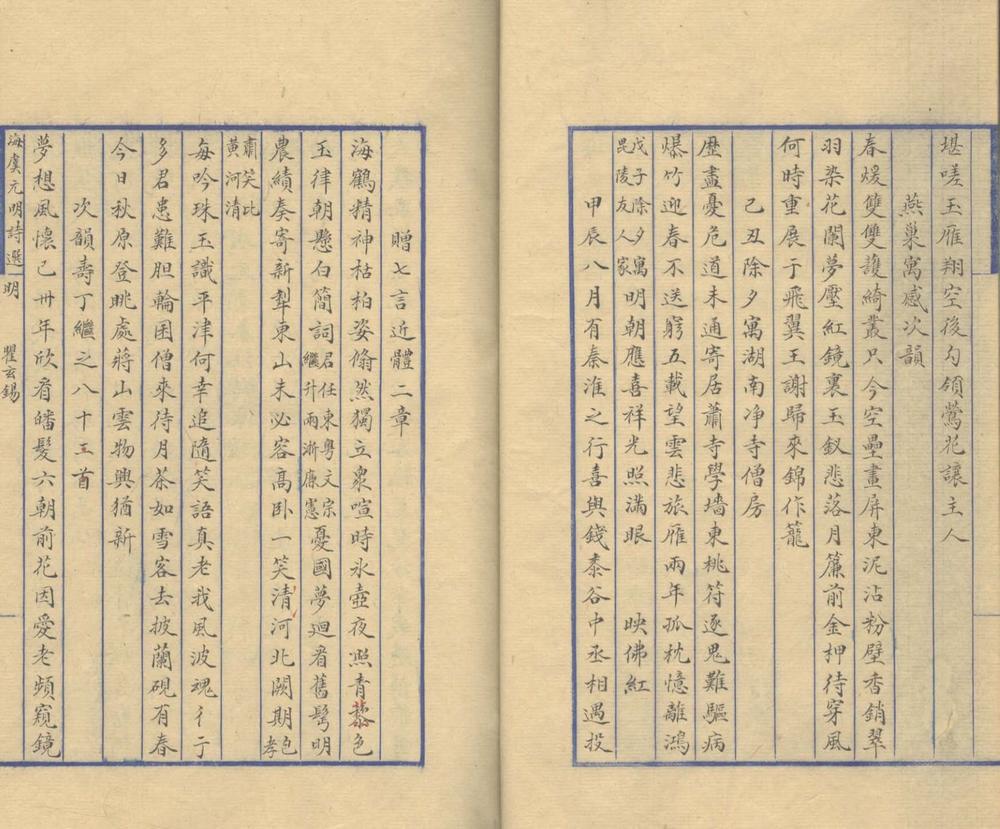 堪嗟玉雁翔空後勾領鶯花讓主人
燕巢寓感次韻
春煖雙雙護綺叢只今空壘畫屏東泥沾粉壁香銷翠
羽染花闌夢壓紅鏡裏玉釵悲落月簾前金押待穿風
何時重展于飛翼王謝歸來錦作籠
己丑除夕寓湖南净寺僧房
歷盡憂危道未通寄居蕭寺學墻東桃符逐鬼難驅病
爆竹迎春不送窮五載望雲悲旅雁兩年孤枕憶離鴻
戊子除夕寓
毘陵友人家
明朝應喜祥光照滿眼 映佛紅
甲辰八月有秦淮之行喜與錢黍谷中丞相遇投
贈七言近體二章
海鶴精神枯柏姿翛然獨立衆喧時氷壺夜煕青藜色
玉律朝懸白簡詞
君任東粵文宗
繼升兩浙廉憲
憂國夢迴看舊髩明
農績奏寄新犁東山未必容高卧一笑清河北闕期
包孝
肅笑比
黃河清
每吟珠玉識平津何幸追隨笑語真老我風波魂彳亍
多君患難胆輪囷僧來待月茶如雪客去披蘭硯有春
今日秋原登眺處蔣山雲物興猶新
次韻壽丁繼之八十三首
夢想風懷已卅年欣看皤髮六朝前花因愛老頻窺鏡
海虞元明詩選 明 瞿玄錫